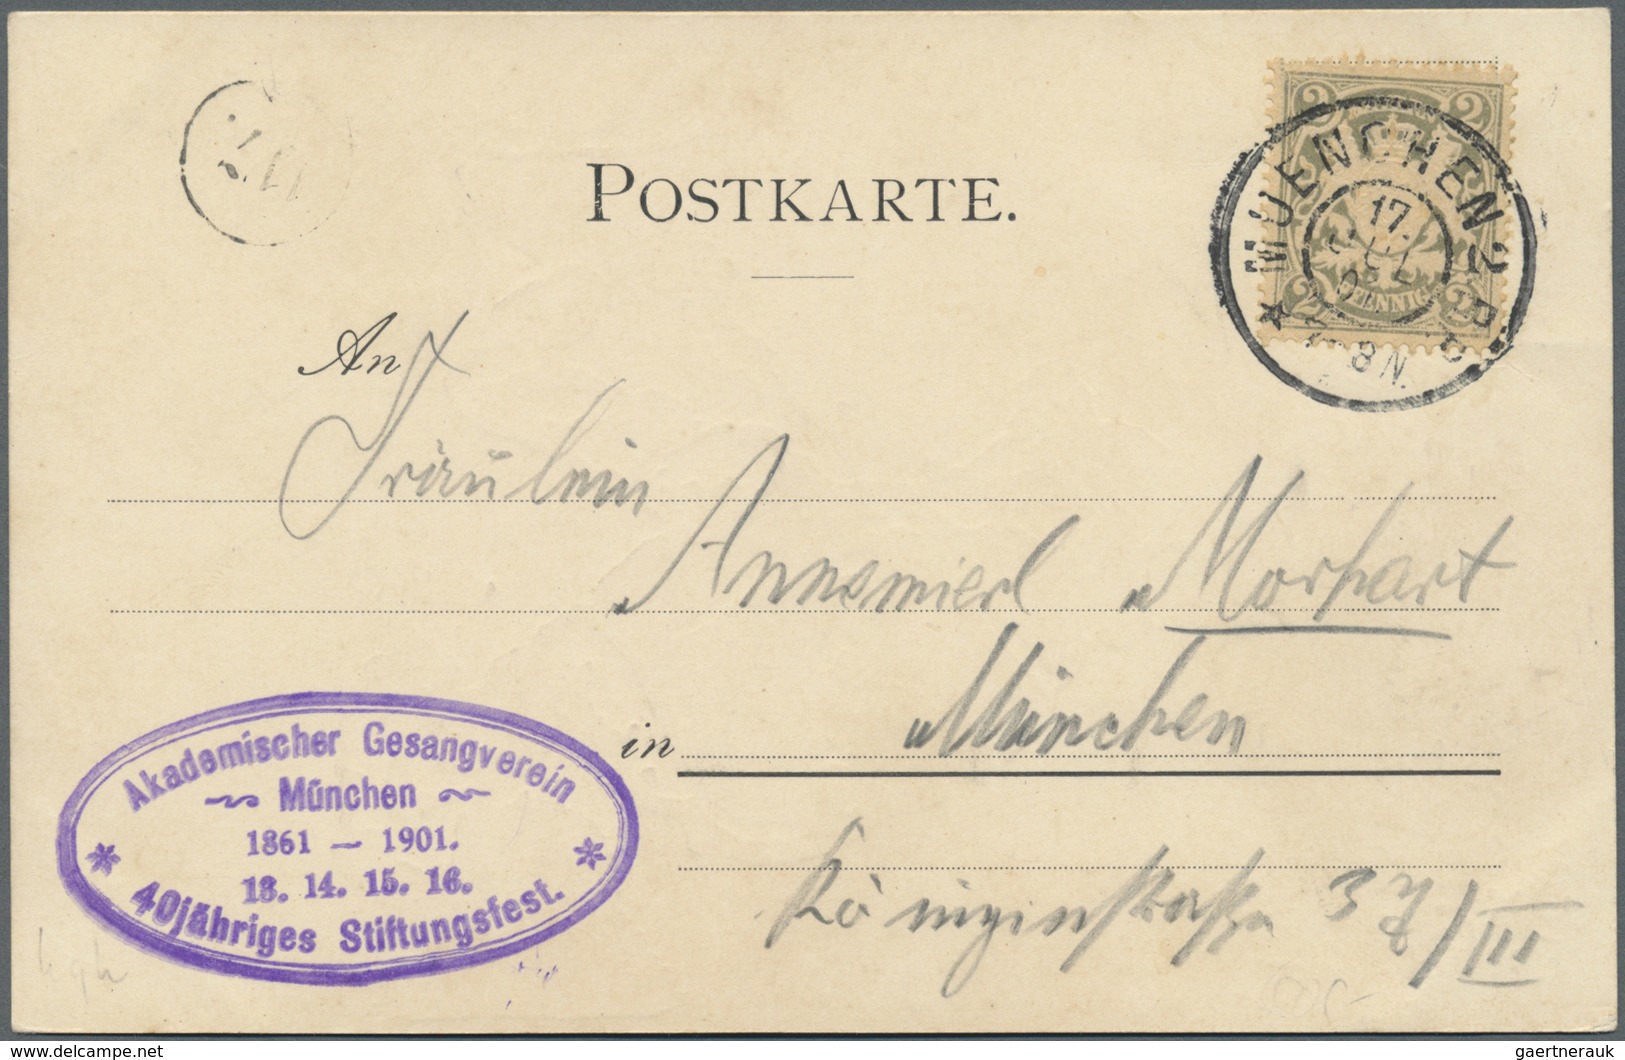 POSTKARTE.
2 2
MUENCHEN 2
17.
JUL
PFENNIG
2
7-8 N.
An
Fräulein
Annemierl Morhart
in München
Königinstraße 37/III
Akademischer Gesangverein
München
1861 — 1901.
13. 14. 15. 16.
40jähriges Stiftungsfest.
www.delcampe.net
gaertnerauk